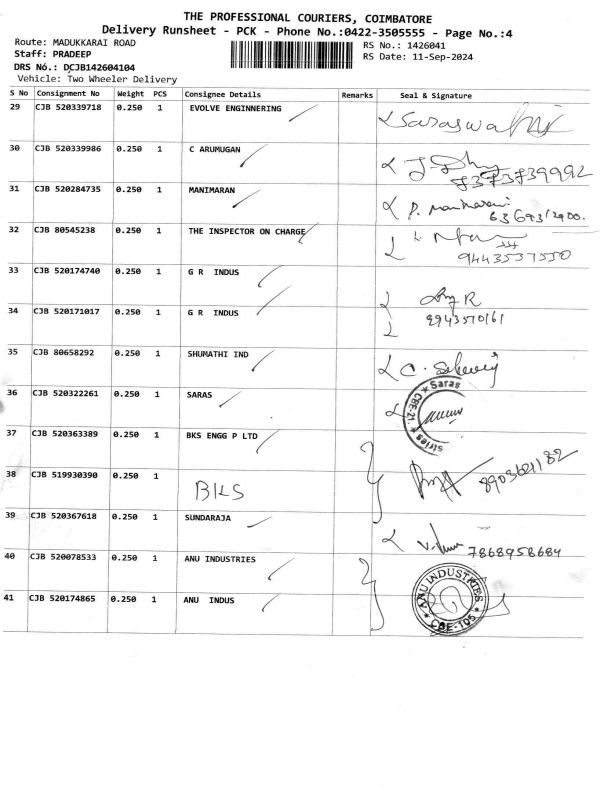 THE PROFESSIONAL COURIERS, COIMBATORE
Delivery Runsheet - PCK - Phone No.:0422-3505555 - Page No.:4
Route: MADUKKARAI ROAD
RS No.: 1426041
Staff: PRADEEP
RS Date: 11-Sep-2024
DRS No.: DCJB142604104
Vehicle: Two Wheeler Delivery
S No Consignment No Weight PCS Consignee Details Remarks Seal & Signature
29 CJB 520339718 0.250 1 EVOLVE ENGINNERING Saraswathi
30 CJB 520339986 0.250 1 C ARUMUGAN
7373739992
31 CJB 520284735 0.250 1 MANIMARAN P. Manimaran
32 CJB 80545238 0.250 1 THE INSPECTOR ON CHARGE
9443537550
33 CJB 520174740 0.250 1 G R INDUS
34 CJB 520171017 0.250 1 G R INDUS
35 CJB 80658292 0.250 1 SHUMATHI IND
36 CJB 520322261 0.250 1 SARAS Saras CBE-21
37 CJB 520363389 0.250 1 BKS ENGG P LTD
38 CJB 519930390 0.250 1 BKS
39 CJB 520367618 0.250 1 SUNDARAJA 7868958684
40 CJB 520078533 0.250 1 ANU INDUSTRIES
41 CJB 520174865 0.250 1 ANU INDUS ANU INDUSTRIES CBE-105